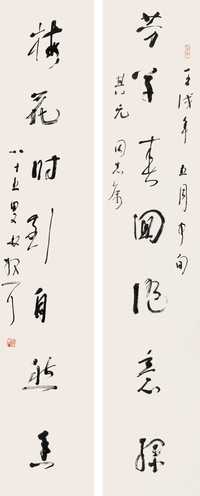 壬戌年五月中旬
芳草春回随意绿
其元同志属
梅花时到自然香
八十五叟林散耳